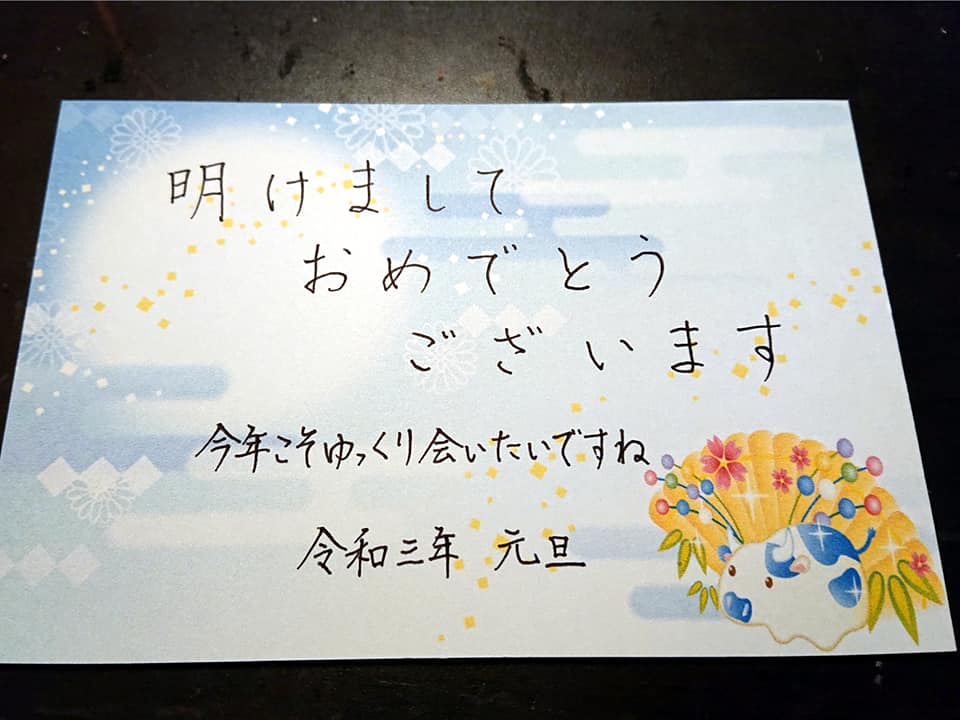 明けまして
おめでとう
ございます
今年こそゆっくり会いたいですね
令和三年 元旦